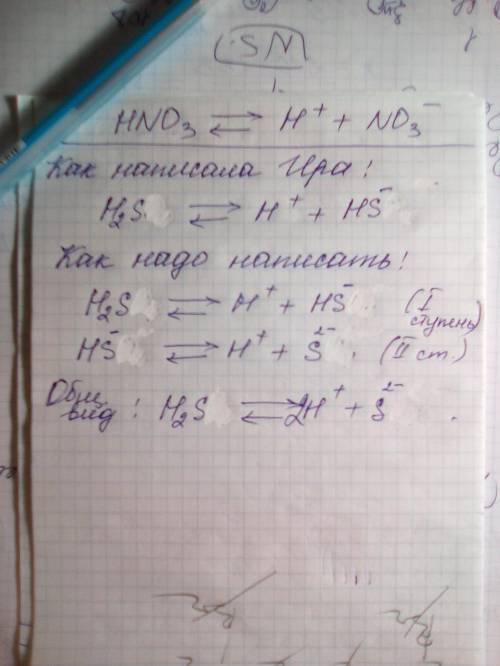 SM
HNO₃ ⇄ H⁺ + NO₃⁻
Как написала Ира!
H₂S ⇄ H⁺ + HS⁻
Как надо написать!
H₂S ⇄ H⁺ + HS⁻ (I ступень)
HS⁻ ⇄ H⁺ + S²⁻. (II ст.)
Общ. вид! H₂S ⇄ 2H⁺ + S²⁻.